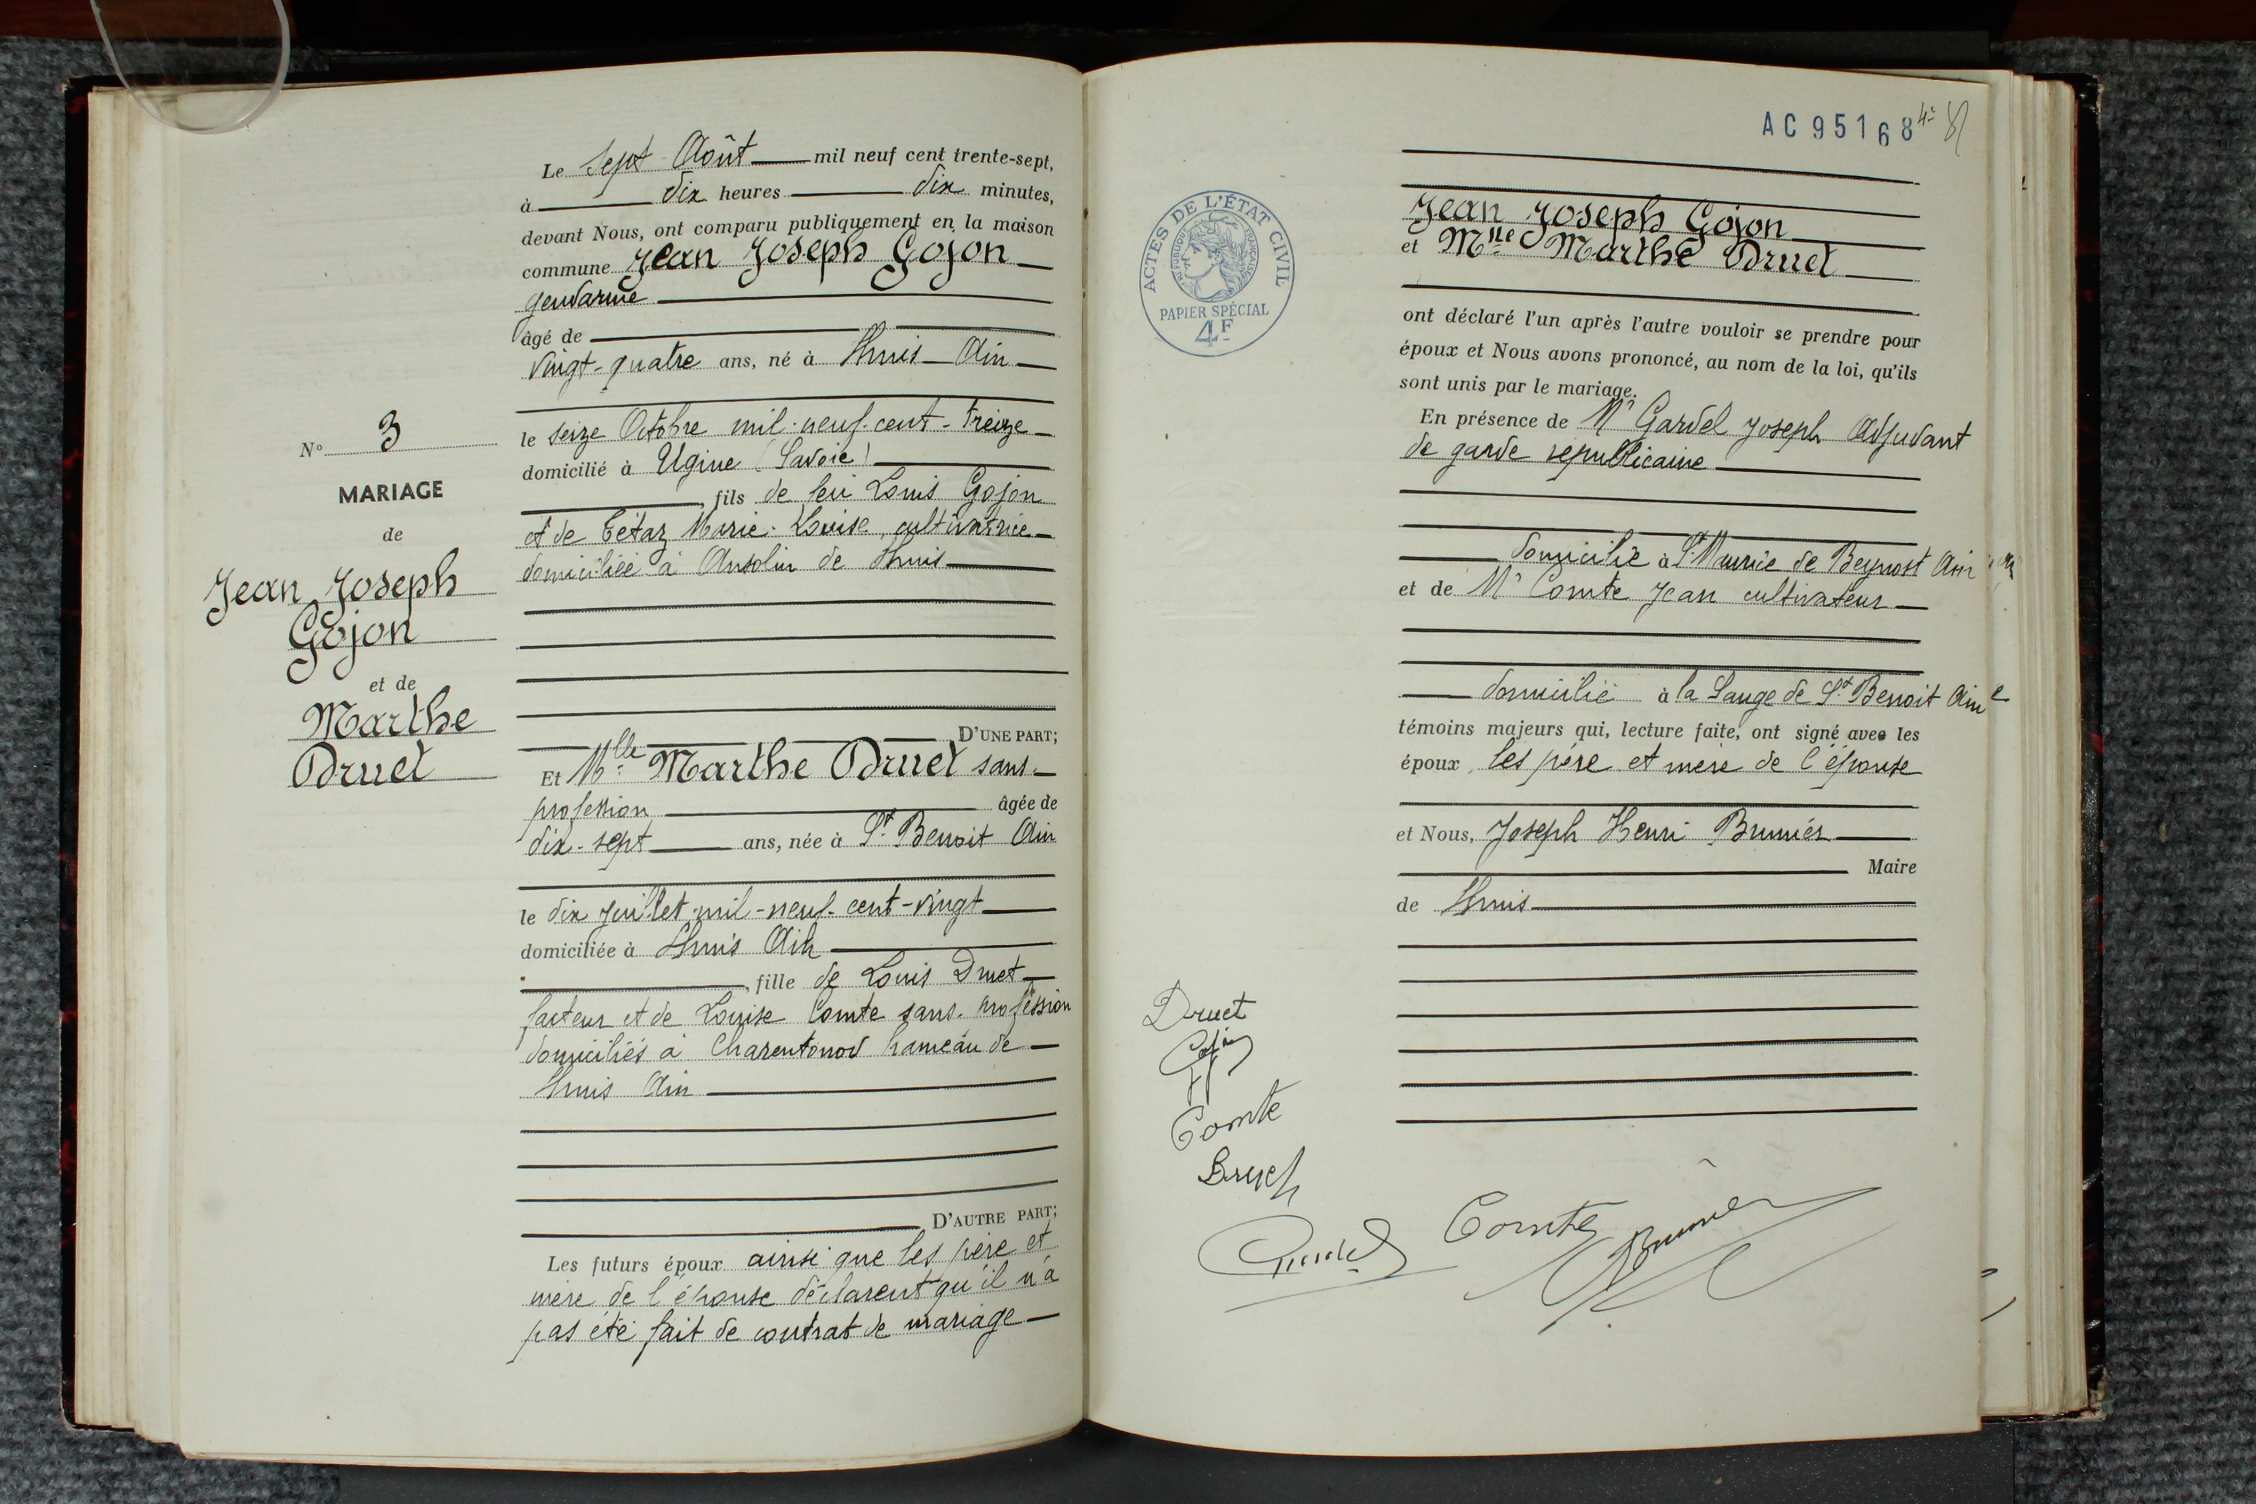 N° 3
MARIAGE
de
Jean Joseph
Gojon
et de
Marthe
Druet
Le sept Août mil neuf cent trente-sept,
à dix heures dix minutes,
devant Nous, ont comparu publiquement en la maison
commune Jean Joseph Gojon
gendarme
âgé de
vingt-quatre ans, né à Lhuis Ain
le seize Octobre mil-neuf-cent-treize
domicilié à Ugine (Savoie)
, fils de feu Louis Gojon
et de Tétaz Marie-Louise, cultivatrice
domiciliée à Ansolin de Lhuis
D'UNE PART;
Et Mlle Marthe Druet sans
profession âgée de
dix-sept ans, née à St Benoit Ain
le dix juillet mil-neuf-cent-vingt
domiciliée à Lhuis Ain
, fille de Louis Druet
facteur et de Louise Comte sans profession
domiciliés à Charentonod hameau de
Lhuis Ain
D'AUTRE PART;
Les futurs époux ainsi que les père et
mère de l'épouse déclarent qu'il n'a
pas été fait de contrat de mariage
AC 95168
ACTES DE L'ÉTAT CIVIL
RÉPUBLIQUE FRANÇAISE
PAPIER SPÉCIAL
4F
Jean Joseph Gojon
et Mlle Marthe Druet
ont déclaré l'un après l'autre vouloir se prendre pour
époux et Nous avons prononcé, au nom de la loi, qu'ils
sont unis par le mariage.
En présence de Mr Gardel Joseph Adjudant
de garde républicaine
domicilié à St Maurice de Beynost Ain
et de Mr Comte Jean cultivateur
domicilié à la Sauge de St Benoit Ain
témoins majeurs qui, lecture faite, ont signé avec les
époux, les père et mère de l'épouse
et Nous, Joseph Henri Brunier
Maire
de Lhuis
Druet
Gojon
Comte
Druet
Gardel
Comte
Brunier